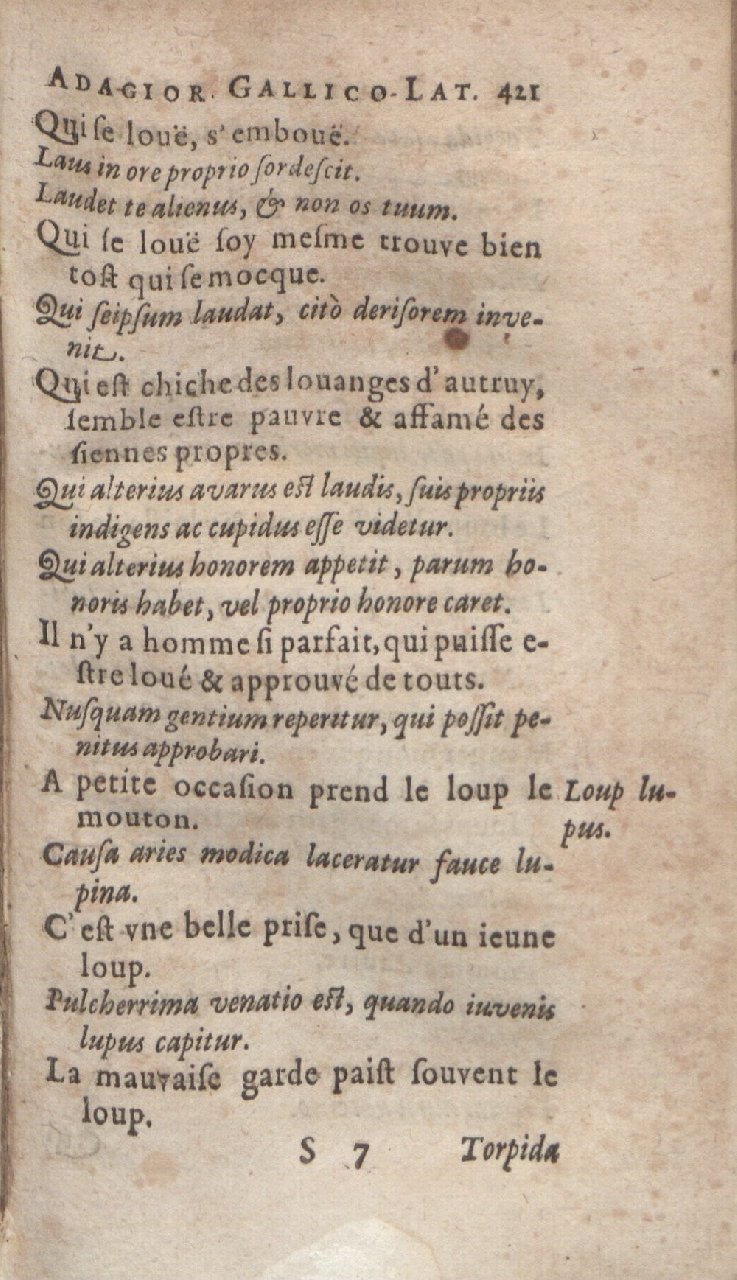 ADAGIOR. GALLICO-LAT. 421
Qui se louë, s'embouë.
Laus in ore proprio ſordeſcit.
Laudet te alienus, & non os tuum.
Qui ſe louë ſoy meſme trouve bien
toſt qui ſe mocque.
Qui ſeipſum laudat, citò deriſorem inve-
nit.
Qui eſt chiche des louanges d'autruy,
ſemble eſtre pauvre & affamé des
ſiennes propres.
Qui alterius avarus eſt laudis, ſuis propriis
indigens ac cupidus eſſe videtur.
Qui alterius honorem appetit, parum ho-
noris habet, vel proprio honore caret.
Il n'y a homme ſi parfait, qui puiſſe e-
ſtre loué & approuvé de touts.
Nuſquam gentium reperitur, qui poſſit pe-
nitus approbari.
A petite occaſion prend le loup le
mouton.
Loup lu-
pus.
Cauſa aries modica laceratur fauce lu-
pina.
C'eſt vne belle priſe, que d'un ieune
loup.
Pulcherrima venatio eſt, quando iuvenis
lupus capitur.
La mauvaiſe garde paiſt ſouvent le
loup.
S 7 Torpida